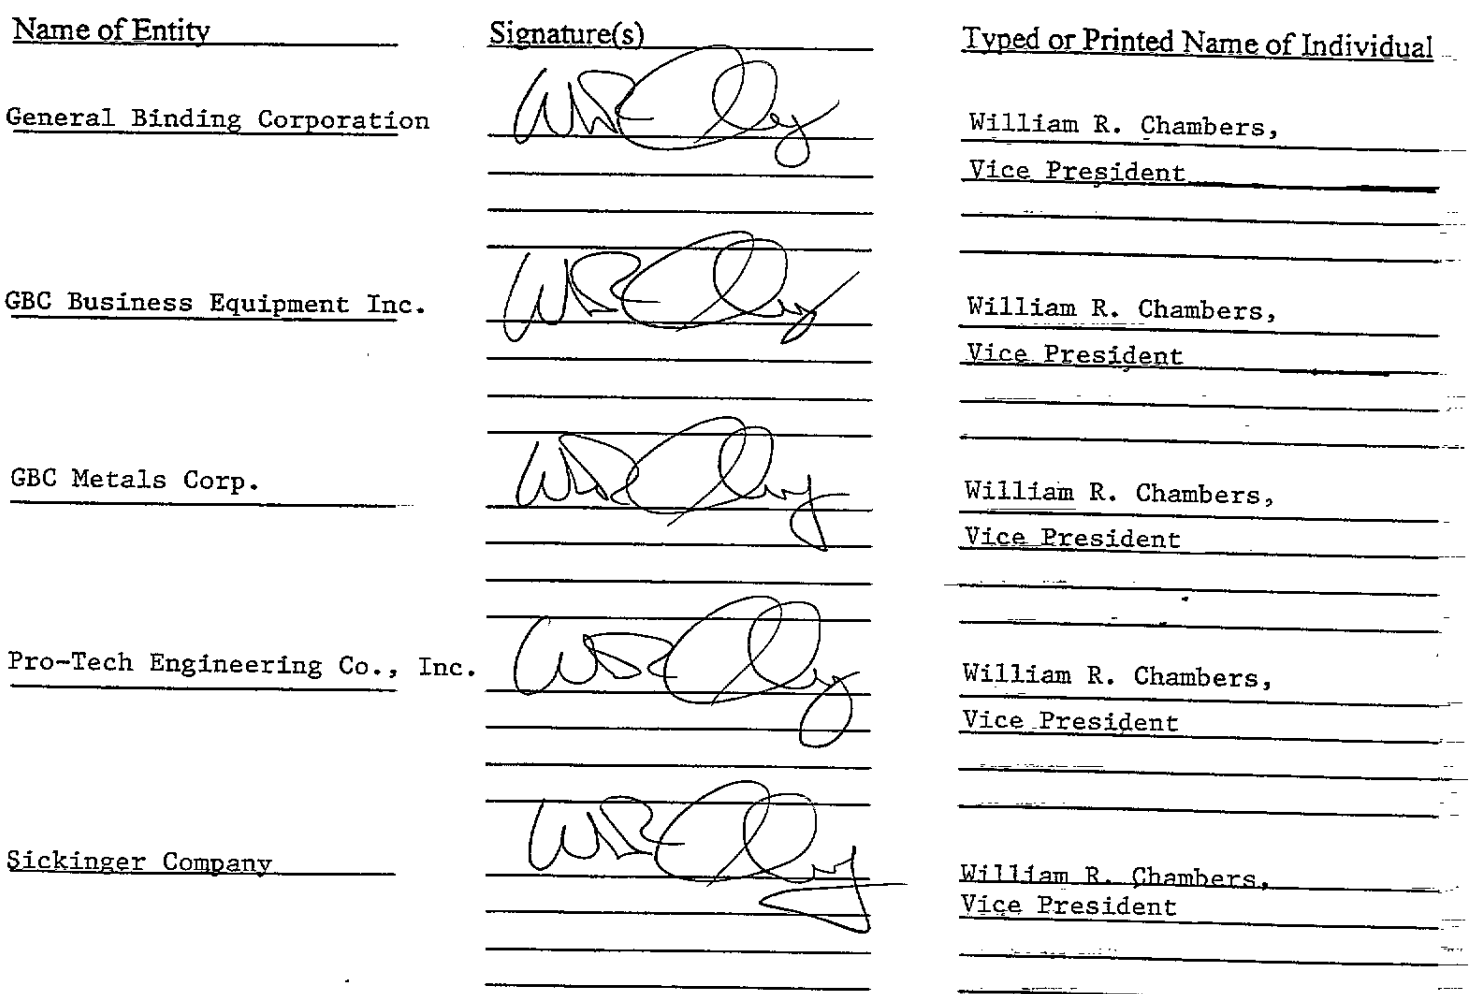 Name of Entity Signature(s) Typed or Printed Name of Individual
General Binding Corporation William R. Chambers,
Vice President
GBC Business Equipment Inc. William R. Chambers,
Vice President
GBC Metals Corp. William R. Chambers,
Vice President
Pro-Tech Engineering Co., Inc. William R. Chambers,
Vice President
Sickinger Company William R. Chambers,
Vice President